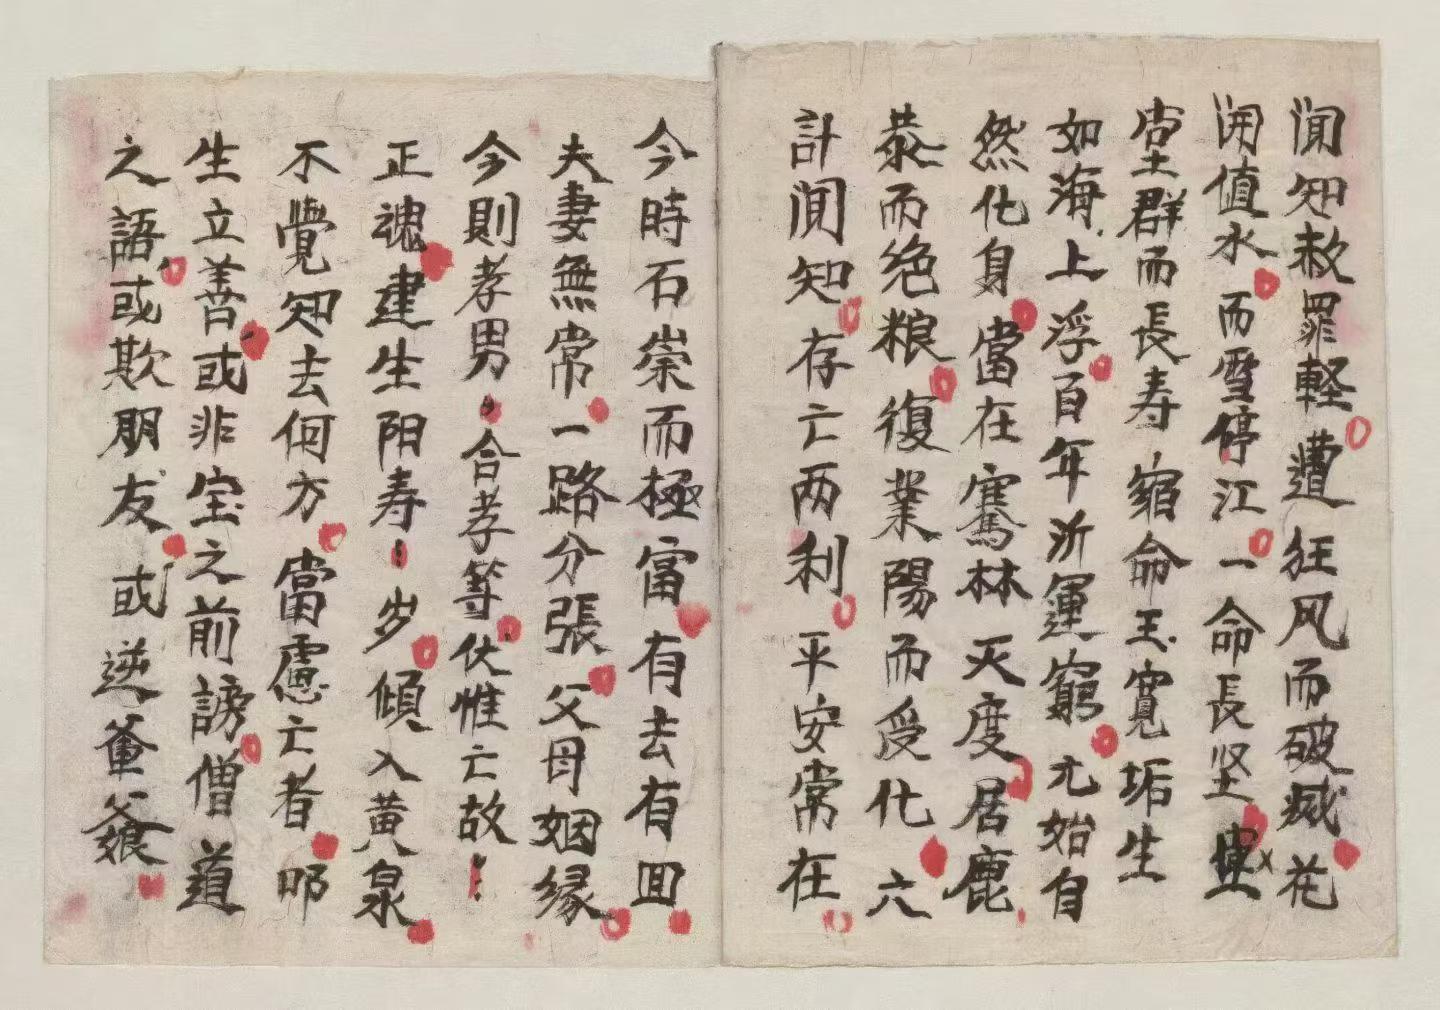 闻知赦罪軽遭狂风而破烕花
闲值水而雪停江一命長坚
坣群而長寿缩命玉寛垢生
如海上浮百年沂運窮尢始自
然化身當在騫林灭度居鹿
恭而绝粮復業陽而受化六
計闻知存亡两利平安常在
今時石崇而極富有去有囬
夫妻無常一路分張父母姻縁
今則孝男合孝等伏惟亡故
正魂建生阳寿岁傾入黄泉
不覺知去何方當慮亡者叩
生立善或非宝之前謗僧道
之語或欺朋友或逆爹娘